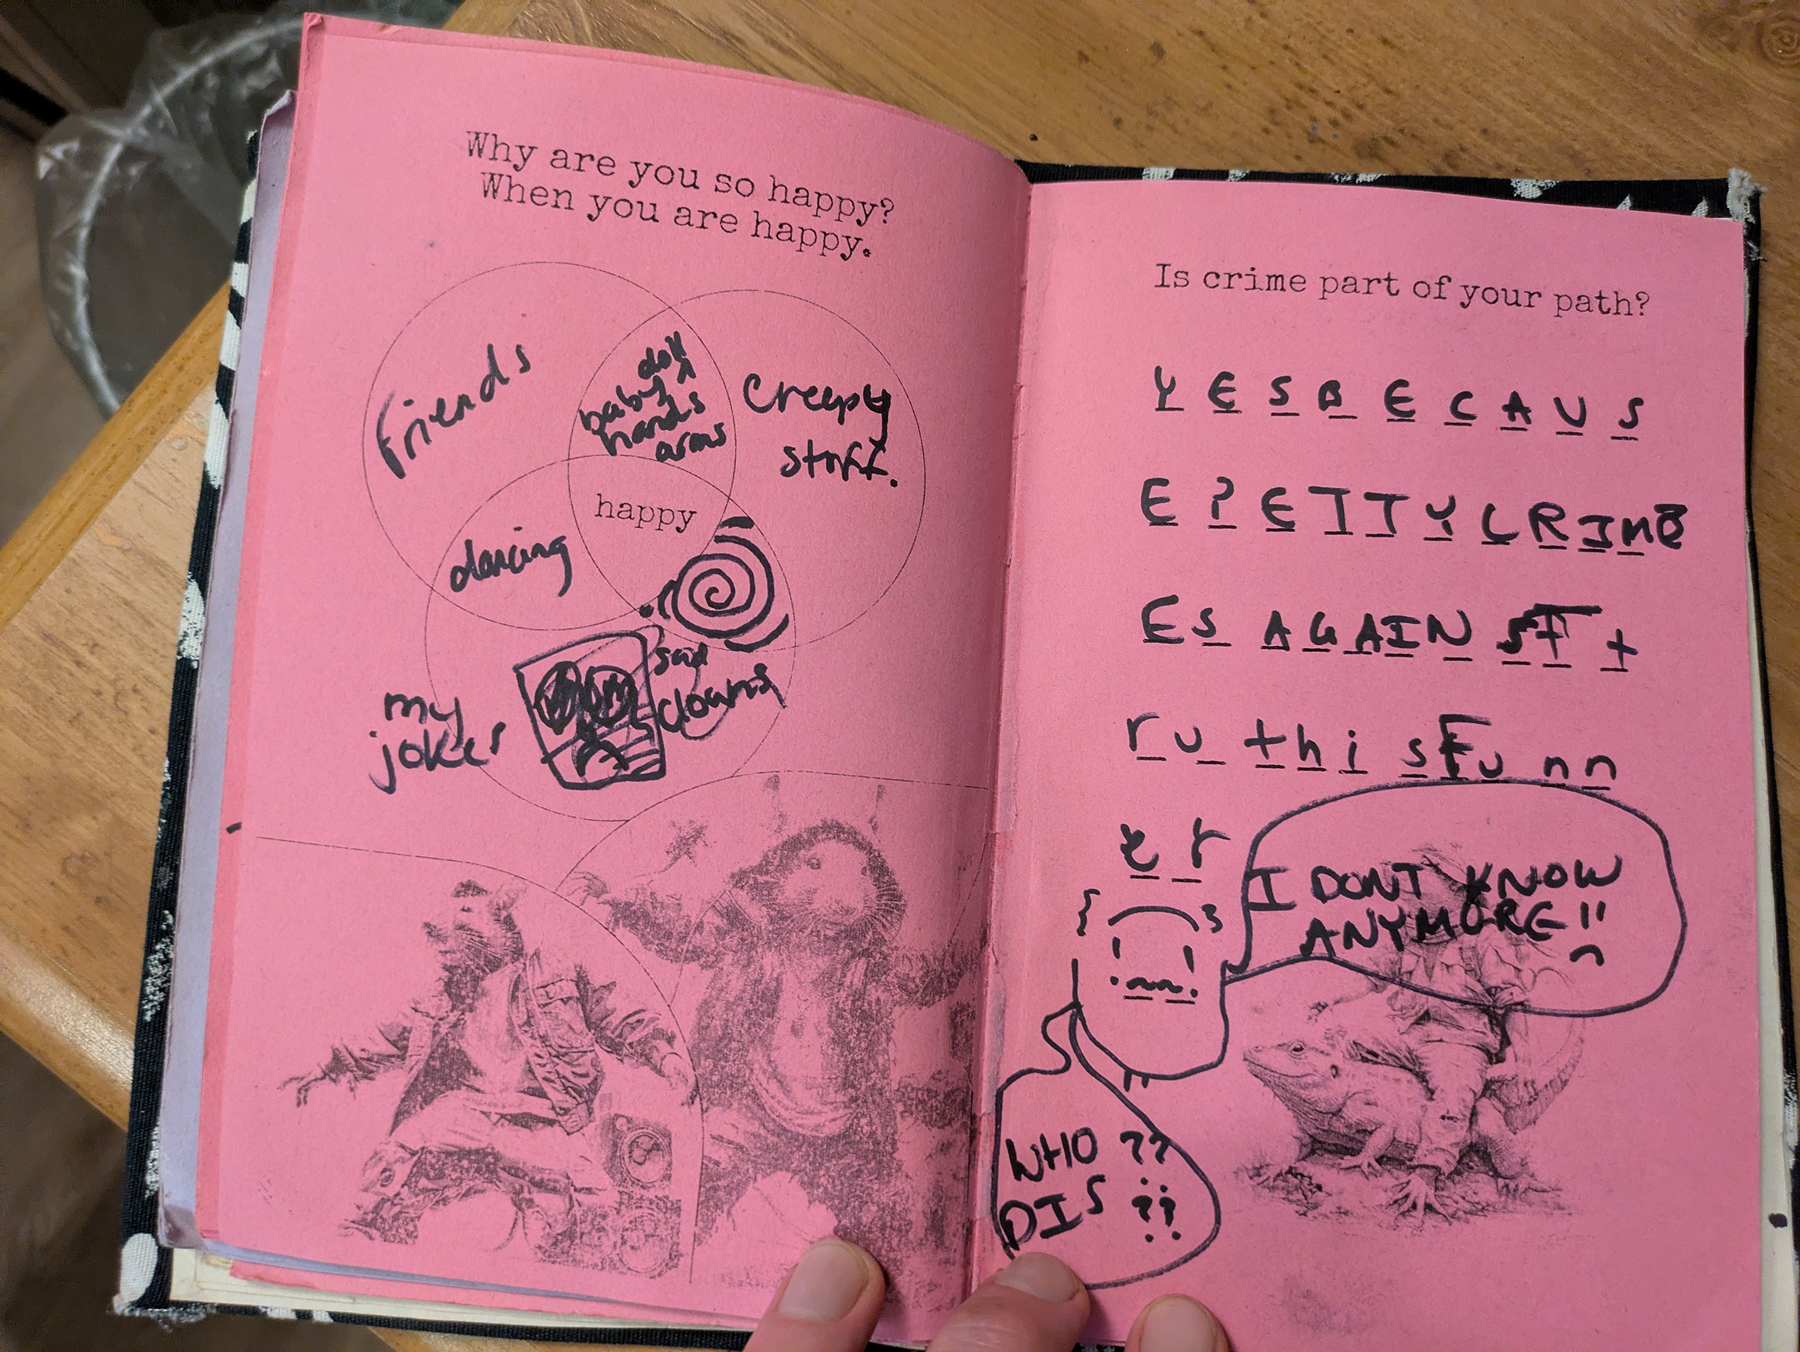 Why are you so happy?
When you are happy.
friends
doll
baby
hands
arms
creepy
stuff.
happy
dancing
sad
clowns
my
joker
Is crime part of your path?
Y E S B E C A U S
E P E T T Y C R I M E
E S A G A I N S T t
r u t h i s F u n n
e r
I DONT KNOW
ANYMORE!!
WHO ??
DIS ??